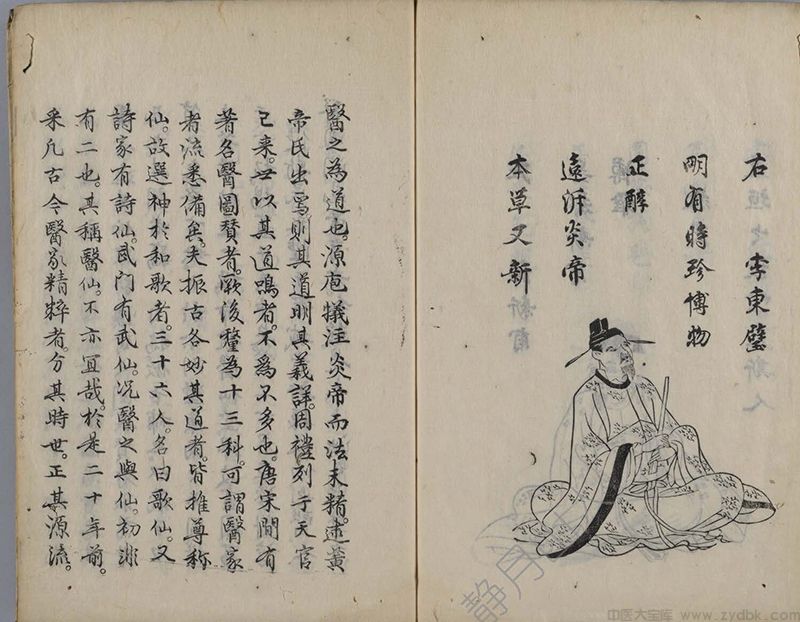 右 李東璧
明有時珍博物
正醇
遠泝炎帝
本草又新
醫之為道也。源庖犧注炎帝而法未精。逮黃
帝氏出焉則其道明其義詳。周禮列于天官
已来。世以其道鳴者。不為不多也。唐宋間有
著名醫圖賛者。厥後釐為十三科。可謂醫家
者流悉備矣。夫振古各妙其道者。皆推尊称
仙。故選神於和歌者。三十六人。名曰歌仙。又
詩家有詩仙。武門有武仙。况醫之與仙。初非
有二也。其稱醫仙。不亦宜哉。於是二十年前。
采凡古今醫家精粹者分其時世。正其源流。
静月
中医大宝库 www.zydbk.com